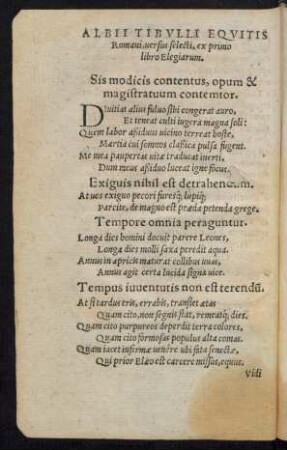 ALBII TIBVLLI EQVITIS
Romani, uersus selecti, ex primo
libro Elegiarum.
Sis modicis contentus, opum &
magistratuum contemtor.
Diuitias alius fuluo sibi congerat auro,
Et teneat culti iugera magna soli:
Quem labor aßiduus uicino terreat hoste,
Martia cui somnos claßica pulsa fugent.
Me mea paupertas uitæ traducat inerti,
Dum meus aßiduo luceat igne focus.
Exiguis nihil est detrahendum.
At uos exiguo pecori furesq́; lupiq́;
Parcite, de magno est præda petenda grege.
Tempore omnia peraguntur.
Longa dies homini docuit parere Leones,
Longa dies molli saxa peredit aqua.
Annus in apricis maturat collibus uuas,
Annus agit certa lucida signa uice.
Tempus iuuentutis non est terendū.
At si tardus eris, errabis, transiet ætas
Quam cito, non segnis stat, remeatq́; dies.
Quam cito purpureos deperdit terra colores,
Quam cito formosas populus alta comas.
Quam iacet infirmæ uenêre ubi fata senectæ,
Qui prior Elæo est carcere missus, equus.
Vidi